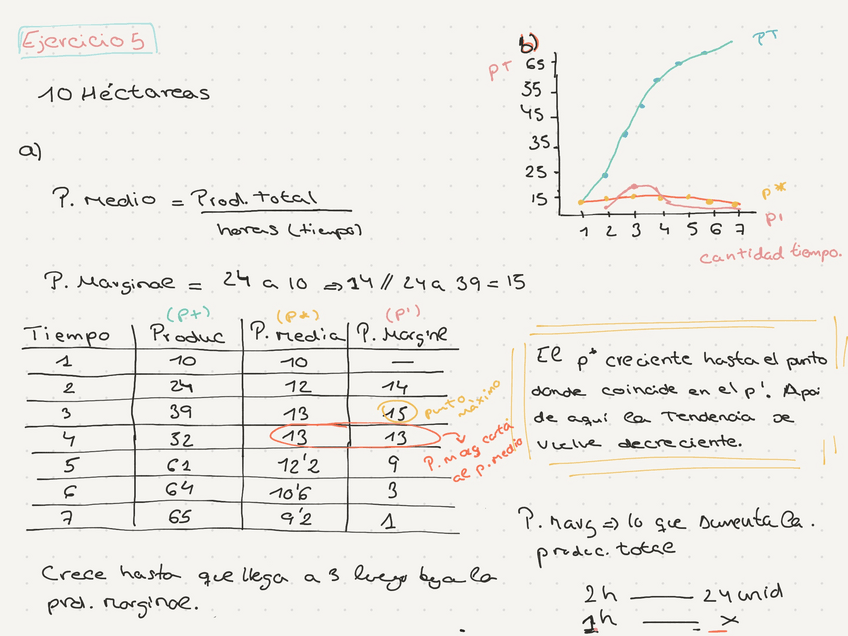 Ejercicio 5
10 Héctareas
a)
P. Medio = Prod. total
horas (tiempo)
P. Marginal = 24 a 10 ⇒ 14 // 24 a 39 = 15
(P+) (P*) (P')
Tiempo Produc P. Media P. Margine
1 10 10 —
2 24 12 14
3 39 13 15
4 32 13 13
5 61 12'2 9
6 64 10'6 3
7 65 9'2 1
punto máximo
P. mag corta
al p. medio
Crece hasta que llega a 3 luego baja la
prod. marginal.
b)
PT
PT
65
35
45
35
25
15
1 2 3 4 5 6 7
P*
P'
cantidad tiempo.
El p* creciente hasta el punto
donde coincide en el p'. Apai
de aquí la Tendencia se
vuelve decreciente.
P. Marg ⇒ lo que aumenta la.
produc. total
2h —— 24 unid
1h —— x